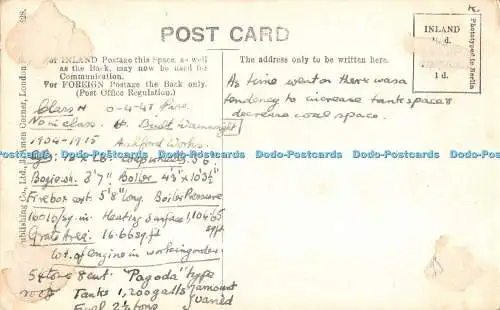 POST CARD
For INLAND Postage this Space, as well
as the Back, may now be used for
Communication.
For FOREIGN Postage the Back only.
(Post Office Regulation.)
The address only to be written here.
INLAND
d.
1 d.
Phototyped in Berlin
Publishing Co., Ltd., Amen Corner, London
828.
K.
Class H 0-4-4T
No in class. Built Wainwright
1904-1915 Ashford Works.
Bogie wh. 3'7" Boiler 4'3" x 10'3½"
Firebox ext. 5'8" long. Boiler Pressure
Heating Surface 1,104.65
Grate Area. 16.66 sq.ft sq ft
Wt. of engine in working order
54 tons 8 cwt. "Pagoda" type
roof Tanks 1,200 galls (amount
Fuel 2½ tons varied
As time went on there was a
tendency to increase tank space &
decrease coal space.
Dodo-Postcards Dodo-Postcards Dodo-Postcards Dodo-Postcards Dodo-Postcards Dodo-Postcards